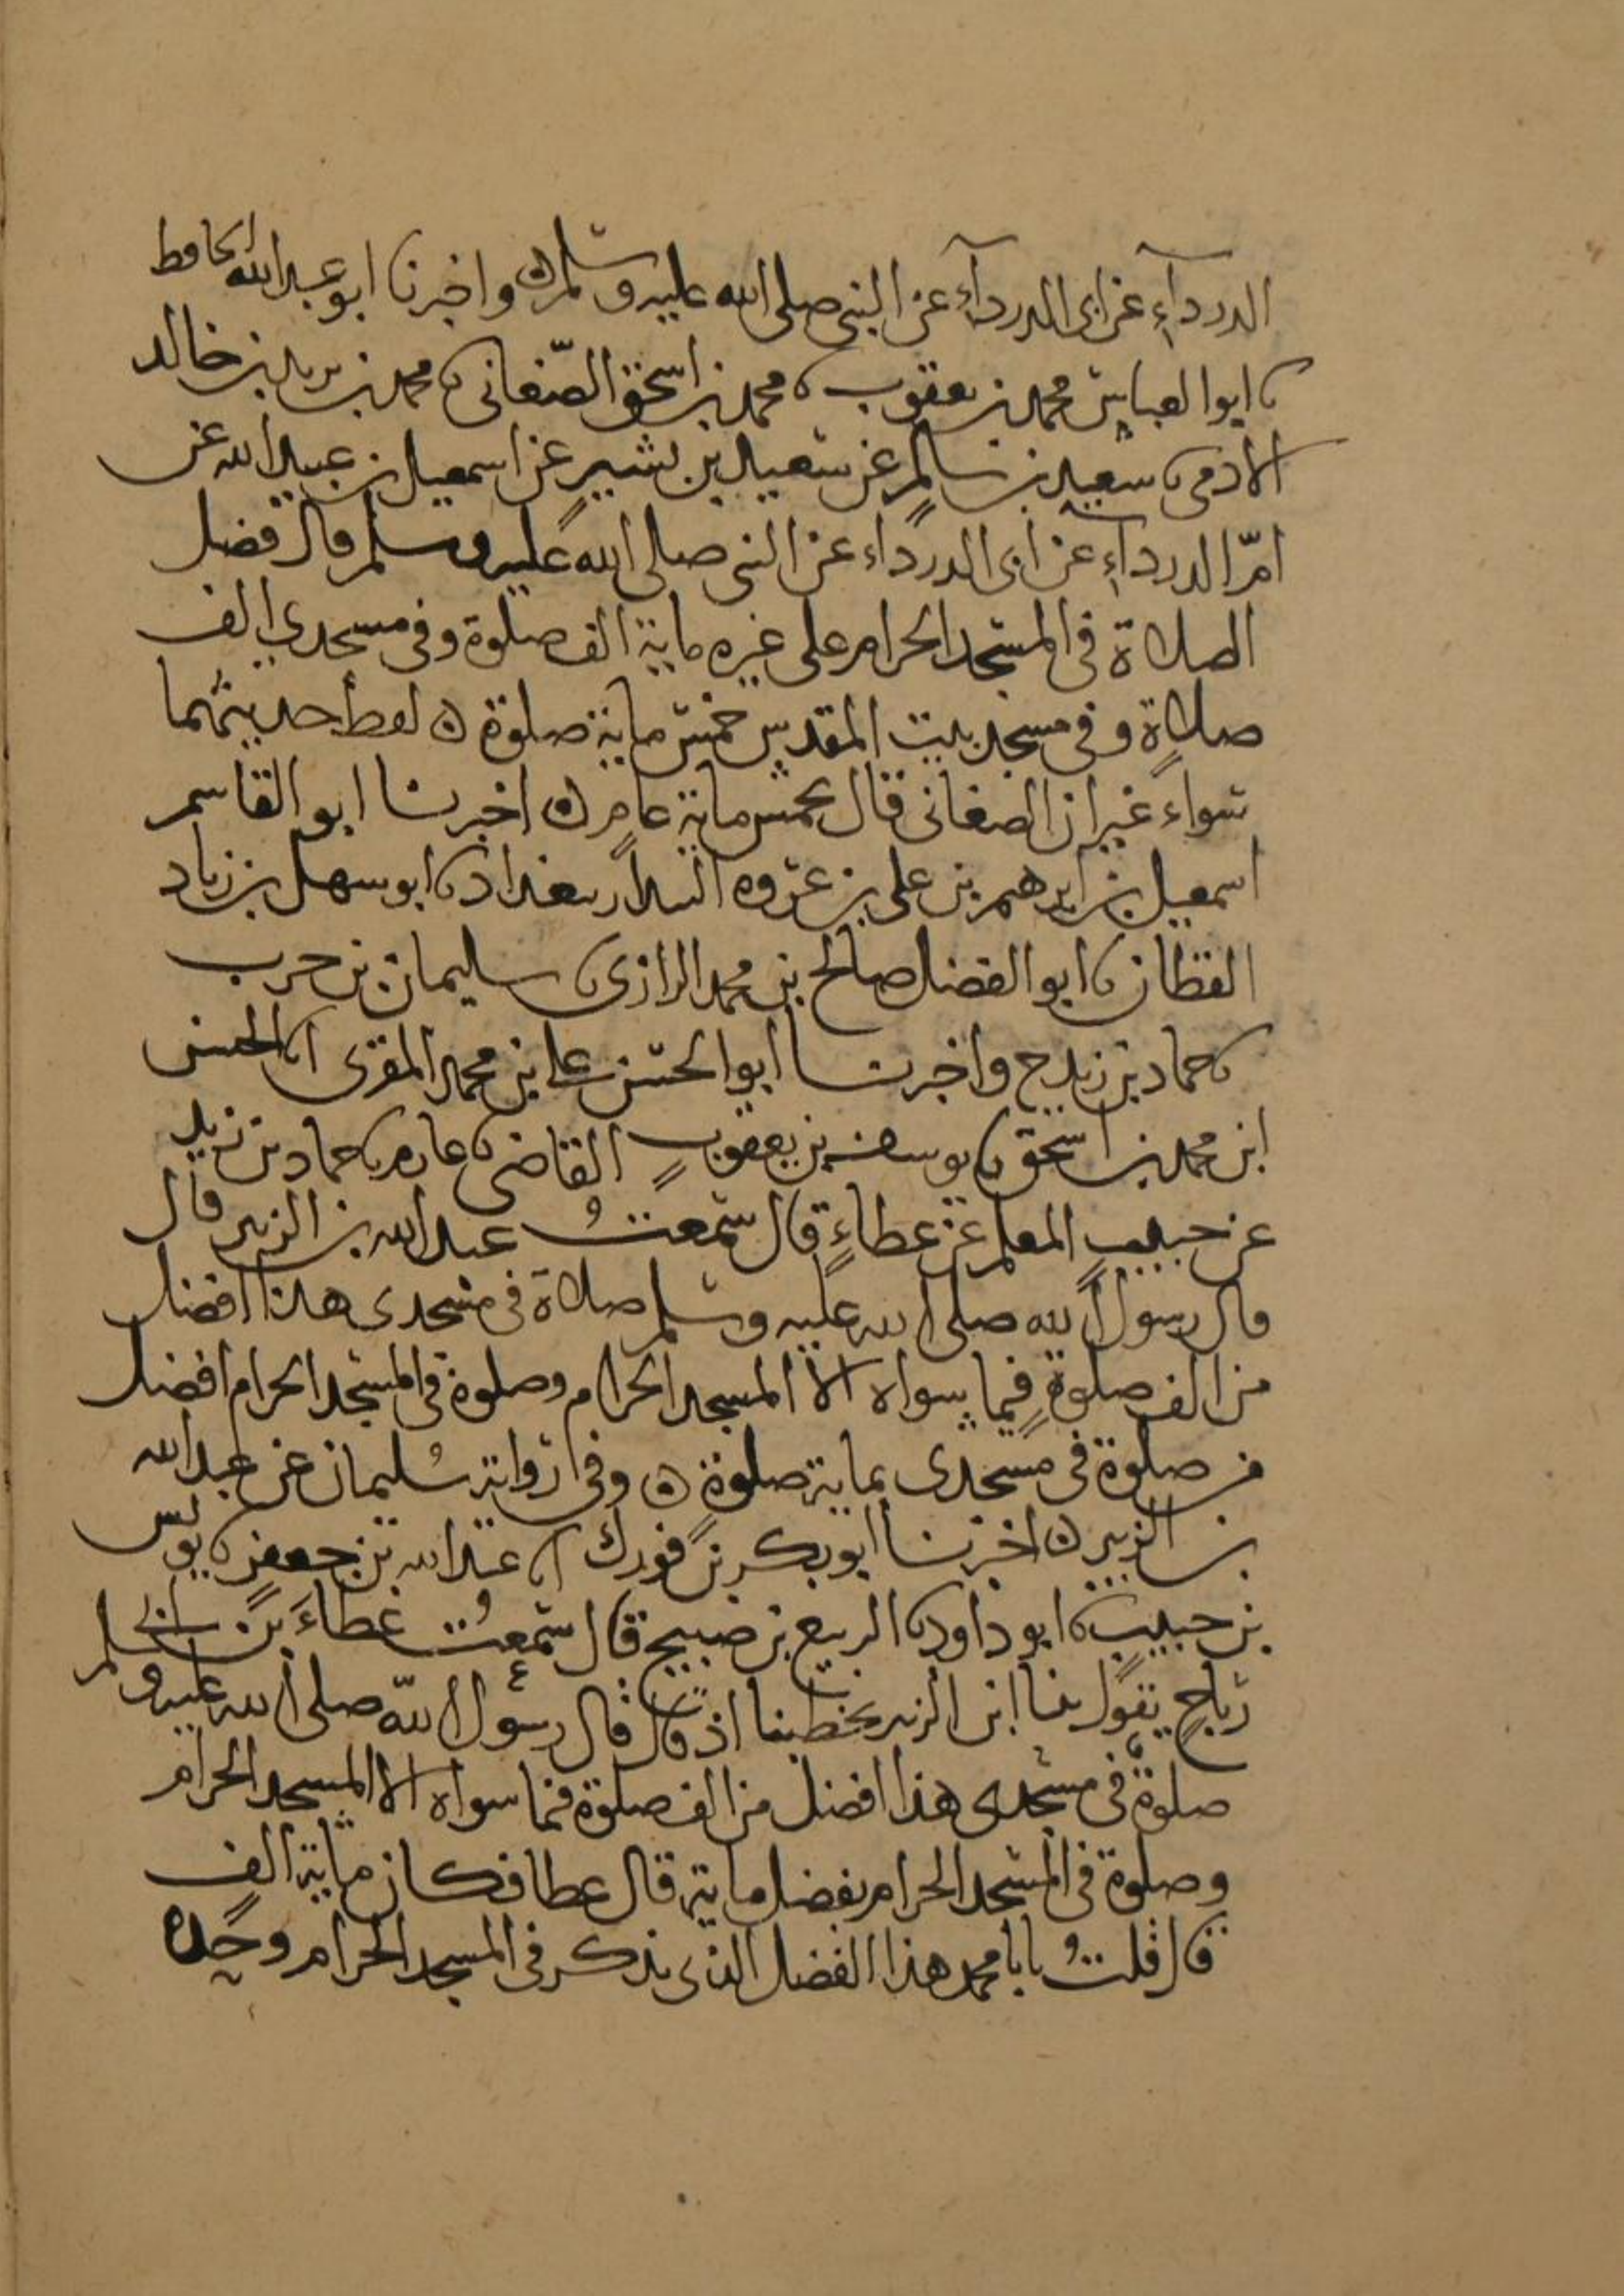 الدرداء عن ابى الدرداء عن النبى صلى الله عليه وسلم ه واخبرنا ابو عبد الله الحافظ
نا ابو العباس محمد بن يعقوب نا محمد بن اسحق الصغانى نا محمد بن يزيد بن خالد
الادمى نا سعيد بن سالم عن سعيد بن بشير عن اسمعيل بن عبيد الله عن
ام الدرداء عن ابى الدرداء عن النبى صلى الله عليه وسلم قال فضل
الصلاة فى المسجد الحرام على غيره ماية الف صلوة وفى مسجدى الف
صلاة وفى مسجد بيت المقدس خمس ماية صلوة ه لفظ حديثهما
سواء غير ان الصغانى قال بخمس ماية عام ه اخبرنا ابو القاسم
اسمعيل بن ابرهيم بن على بن عروه ببغداد نا ابو سهل بن زياد
القطان نا ابو الفضل صالح بن محمد الرازى نا سليمان بن حرب
نا حماد بن زيد ح واخبرنا ابو الحسن على بن محمد المقرى انا الحسن
ابن محمد بن اسحق نا يوسف بن يعقوب القاضى نا عارم نا حماد بن زيد
عن حبيب المعلم عن عطاءٍ قال سمعتُ عبد الله بن الزبير قال
قال رسول الله صلى الله عليه وسلم صلاة فى مسجدى هذا افضل
من الف صلوةٍ فيما سواه الا المسجد الحرام وصلوة فى المسجد الحرام افضل
من صلوة فى مسجدى بماية صلوة ه وفى رواية سليمان عن عبد الله
بن الزبير ه اخبرنا ابو بكر بن فورك انا عبد الله بن جعفر نا يونس
بن حبيب نا ابو داود نا الربيع بن صبيح قال سمعتُ عطاءَ بن ابى
رباحٍ يقول بينا ابن الزبير يخطبنا اذ قال قال رسول الله صلى الله عليه وسلم
صلوةٌ فى مسجدى هذا افضل من الف صلوة فيما سواه الا المسجد الحرام
وصلوة فى المسجد الحرام بفضل ماية قال عطا فكان ماية الف
قال قلتُ يابا محمد هذا الفضل الذى يذكر فى المسجد الحرام وحده